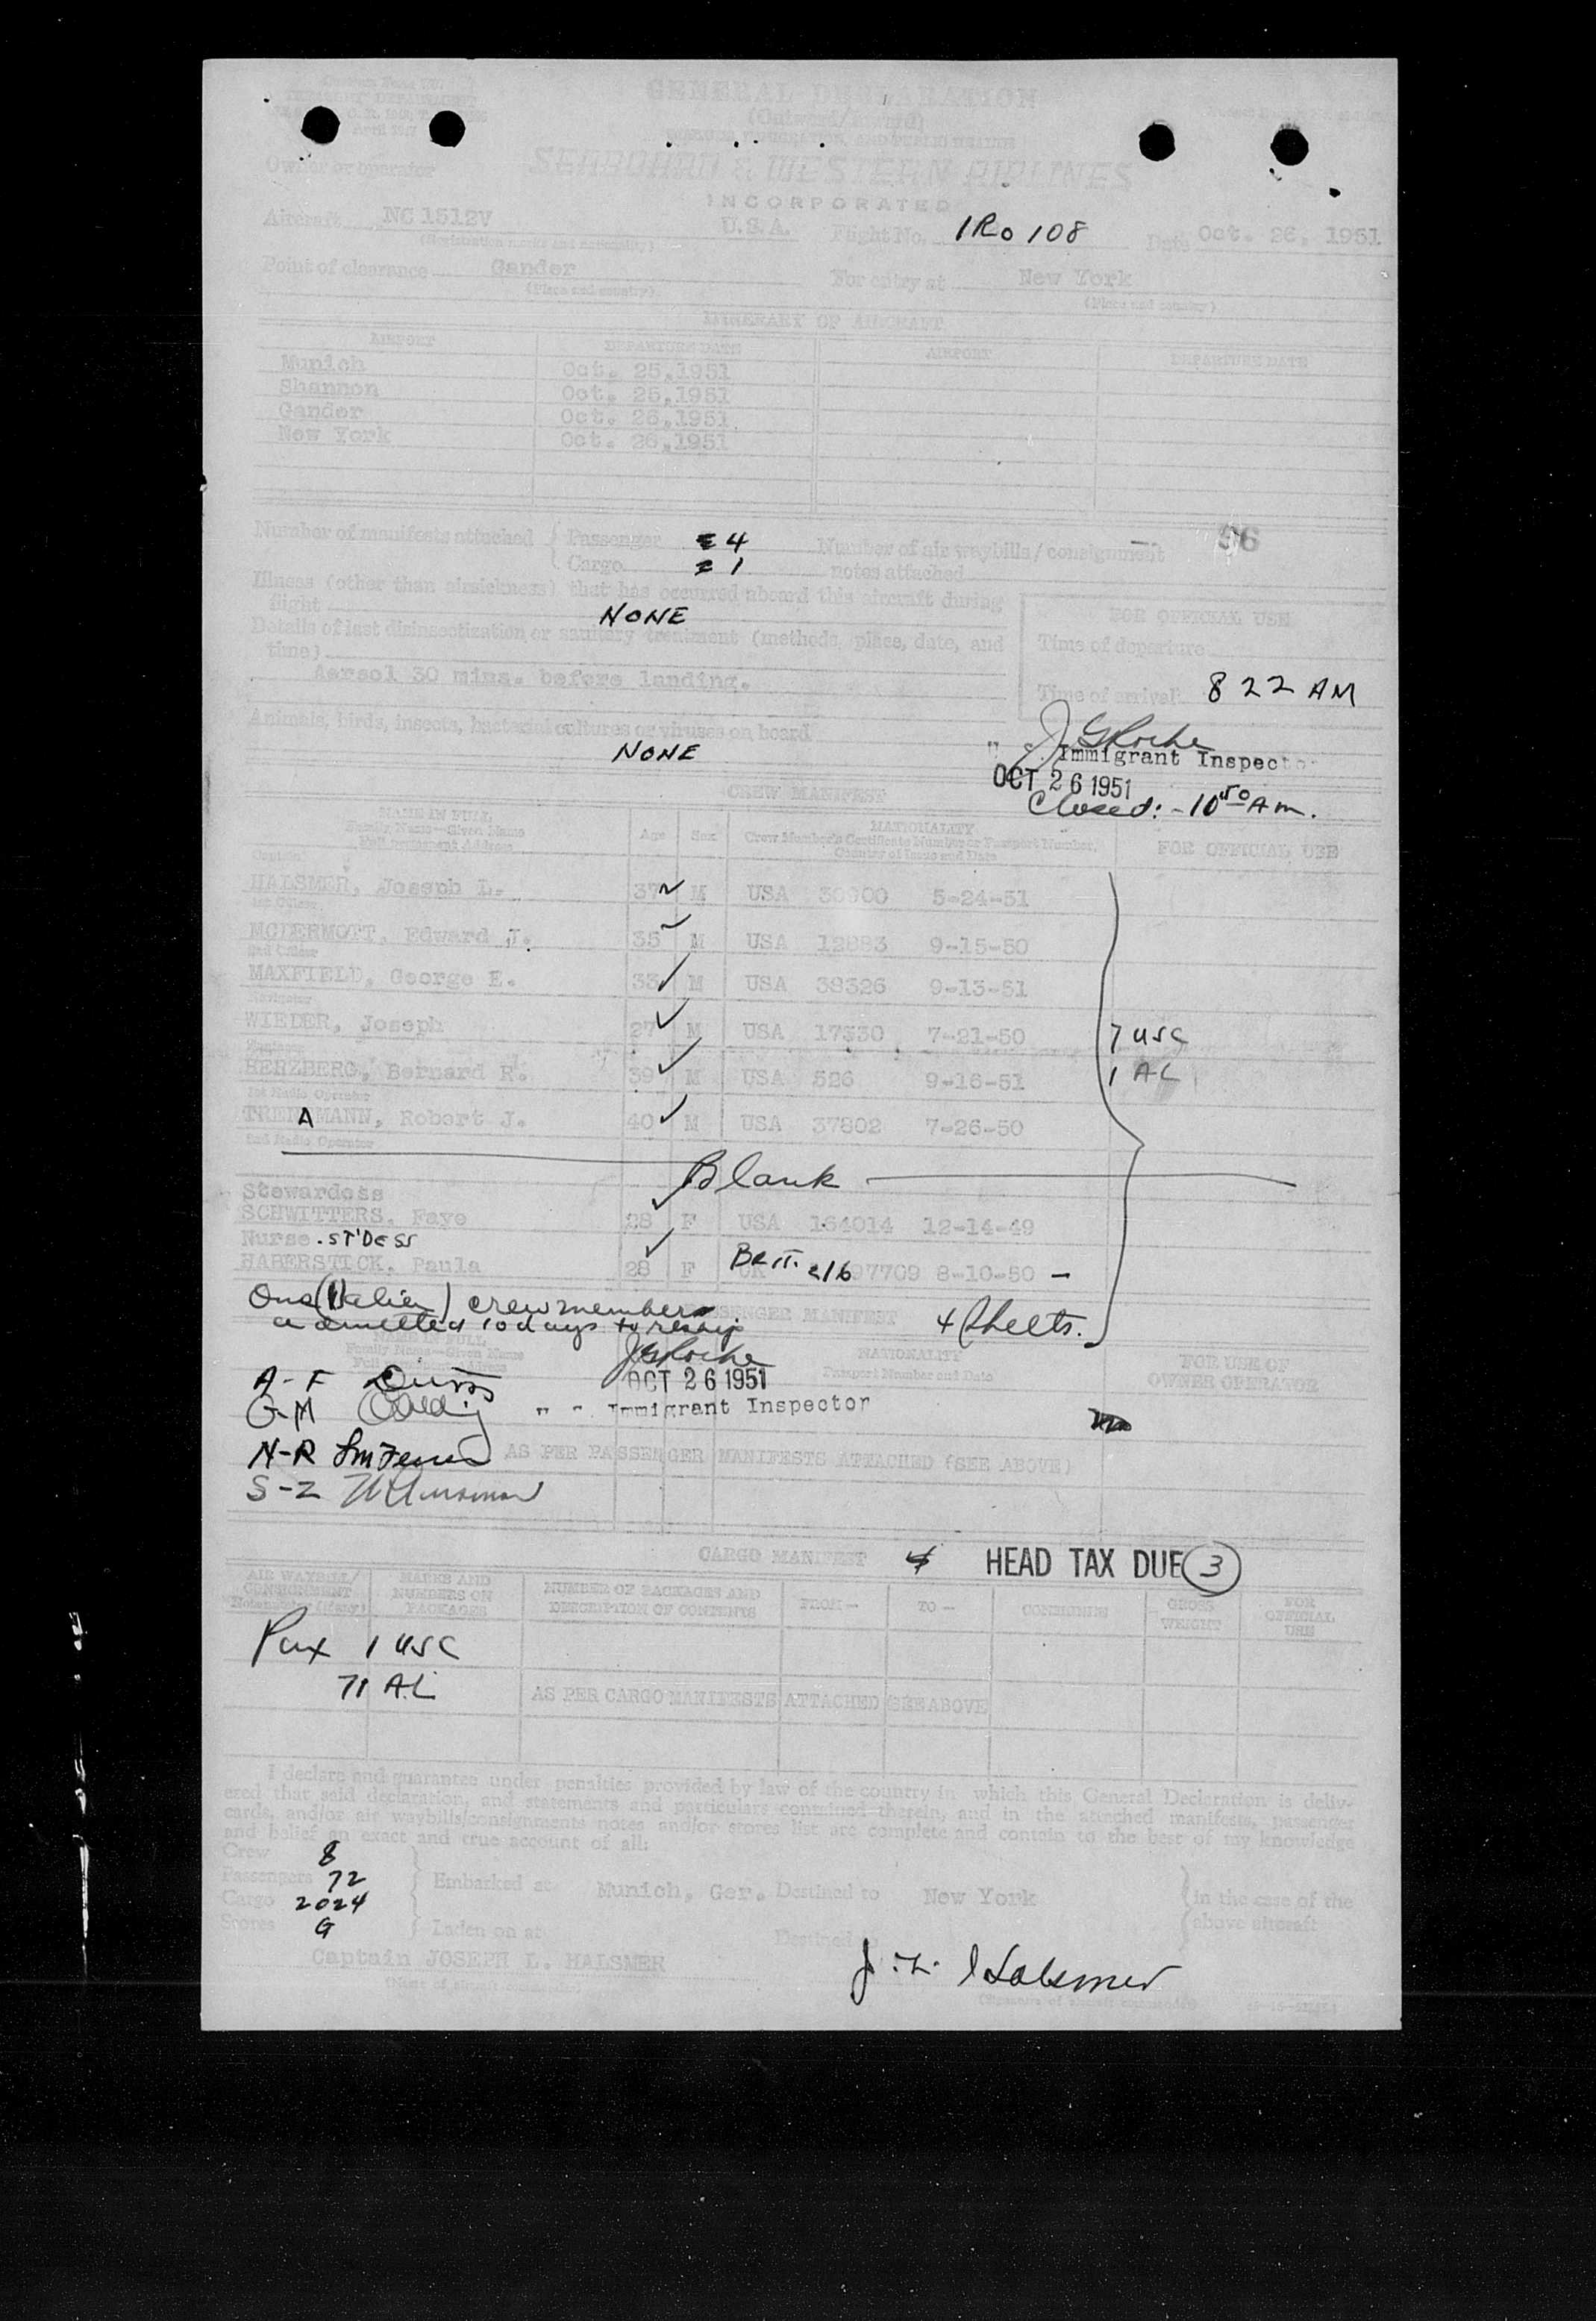 GENERAL DECLARATION
(Outward/Inward)
April 1947
Owner or operator SEABOARD & WESTERN AIRLINES
INCORPORATED
Aircraft NC 1512V U.S.A. Flight No. IRO 108 Date Oct. 26, 1951
(Registration marks and nationality)
Point of clearance Gander For entry at New York
(Place and country) (Place and country)
ITINERARY OF AIRCRAFT
AIRPORT DEPARTURE DATE AIRPORT DEPARTURE DATE
Munich Oct. 25,1951
Shannon Oct. 25,1951
Gander Oct. 26,1951
New York Oct. 26,1951
Number of manifests attached { Passenger 4 Number of air waybills/consignment 96
Cargo 1 notes attached
Illness (other than airsickness) that has occurred aboard this aircraft during
flight NONE
FOR OFFICIAL USE
Details of last disinsectization or sanitary treatment (methods, place, date, and
time)
Time of departure
Aersol 30 mins. before landing.
Time of arrival: 8 22 AM
Animals, birds, insects, bacterial cultures or viruses on board
NONE
JGRoche
Immigrant Inspector
OCT 26 1951
Closed: - 10 50 Am.
CREW MANIFEST
IN FULL
Family Name—Given Name
Full Permanent Address
Age Sex NATIONALITY
Crew Member's Certificate Number or Passport Number,
Country of Issue and Date
FOR OFFICIAL USE
Captain
HALSMER, Joseph L. 37 M USA 30900 5-24-51
1st Officer
MCDERMOTT, Edward J. 35 M USA 12883 9-15-50
2nd Officer
MAXFIELD, George E. 33 M USA 38326 9-13-51
Navigator
WIEDER, Joseph 27 M USA 17330 7-21-50
7 USC
HERZBERG, Bernard R. 39 M USA 526 9-16-51
1 AL
1st Radio Operator
A MANN, Robert J. 40 M USA 37802 7-26-50
2nd Radio Operator
Blank
Stewardess
SCHWITTERS, Faye 28 F USA 164014 12-14-49
Nurse. ST'DESS
HABERSTICK, Paula 28 F Brit. 97709 8-10-50 —
One (1) alien) crewmember
admitted 10 days to reship
PASSENGER MANIFEST 4 Sheets.
JGRoche
IN FULL
Family Name—Given Name
NATIONALITY
Passport Number and Date
FOR USE OF
OWNER OPERATOR
OCT 26 1951
A-F
G-M
Immigrant Inspector
N-R
AS PER PASSENGER MANIFESTS ATTACHED (SEE ABOVE)
S-Z
CARGO MANIFEST HEAD TAX DUE 3
AIR WAYBILL/
CONSIGNMENT
MARKS AND
NUMBERS ON
PACKAGES
NUMBER OF PACKAGES AND
DESCRIPTION OF CONTENTS
FROM— TO— CONSIGNEE GROSS
WEIGHT
FOR
OFFICIAL
USE
Pax 1 USC
71 AL
AS PER CARGO MANIFESTS ATTACHED SEE ABOVE
I declare and guarantee under penalties provided by law of the country in which this General Declaration is deliv-
ered that said declaration, and statements and particulars contained therein, and in the attached manifests, passenger
cards, and/or air waybills/consignments notes and/or stores list are complete and contain to the best of my knowledge
and belief an exact and true account of all:
Crew 8
Passengers 72 Embarked at Munich, Ger. Destined to New York In the case of the
Cargo 2024 above aircraft
Stores G Laden on at Destined to
Captain JOSEPH L. HALSMER J. L. Halsmer
(Name of aircraft commander) (Signature of aircraft commander)